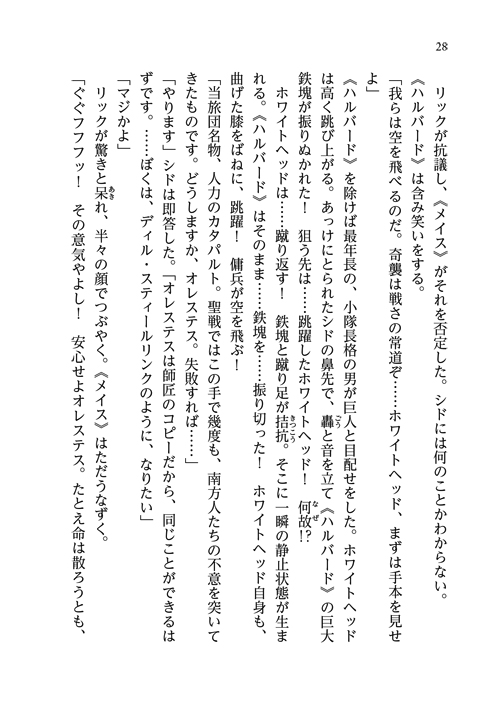 28
リックが抗議し、《メイス》がそれを否定した。シドには何のことかわからない。
《ハルバード》は含み笑いをする。
「我らは空を飛べるのだ。奇襲は戦さの常道ぞ……ホワイトヘッド、まずは手本を見せ
よ」
《ハルバード》を除けば最年長の、小隊長格の男が巨人と目配せをした。ホワイトヘッド
は高く跳び上がる。あっけにとられたシドの鼻先で、轟と音を立て《ハルバード》の巨大
鉄塊が振りぬかれた！　狙う先は……跳躍したホワイトヘッド！　何故!?
ホワイトヘッドは……蹴り返す！　鉄塊と蹴り足が拮抗。そこに一瞬の静止状態が生ま
れる。《ハルバード》はそのまま……鉄塊を……振り切った！　ホワイトヘッド自身も、
曲げた膝をばねに、跳躍！　傭兵が空を飛ぶ！
「当旅団名物、人力のカタパルト。聖戦ではこの手で幾度も、南方人たちの不意を突いて
きたものです。どうしますか、オレステス。失敗すれば……」
「やります」シドは即答した。「オレステスは師匠のコピーだから、同じことができるは
ずです。……ぼくは、ディル・スティールリンクのように、なりたい」
「マジかよ」
リックが驚きと呆れ、半々の顔でつぶやく。《メイス》はただうなずく。
「ぐぐフフフッ！　その意気やよし！　安心せよオレステス。たとえ命は散ろうとも、